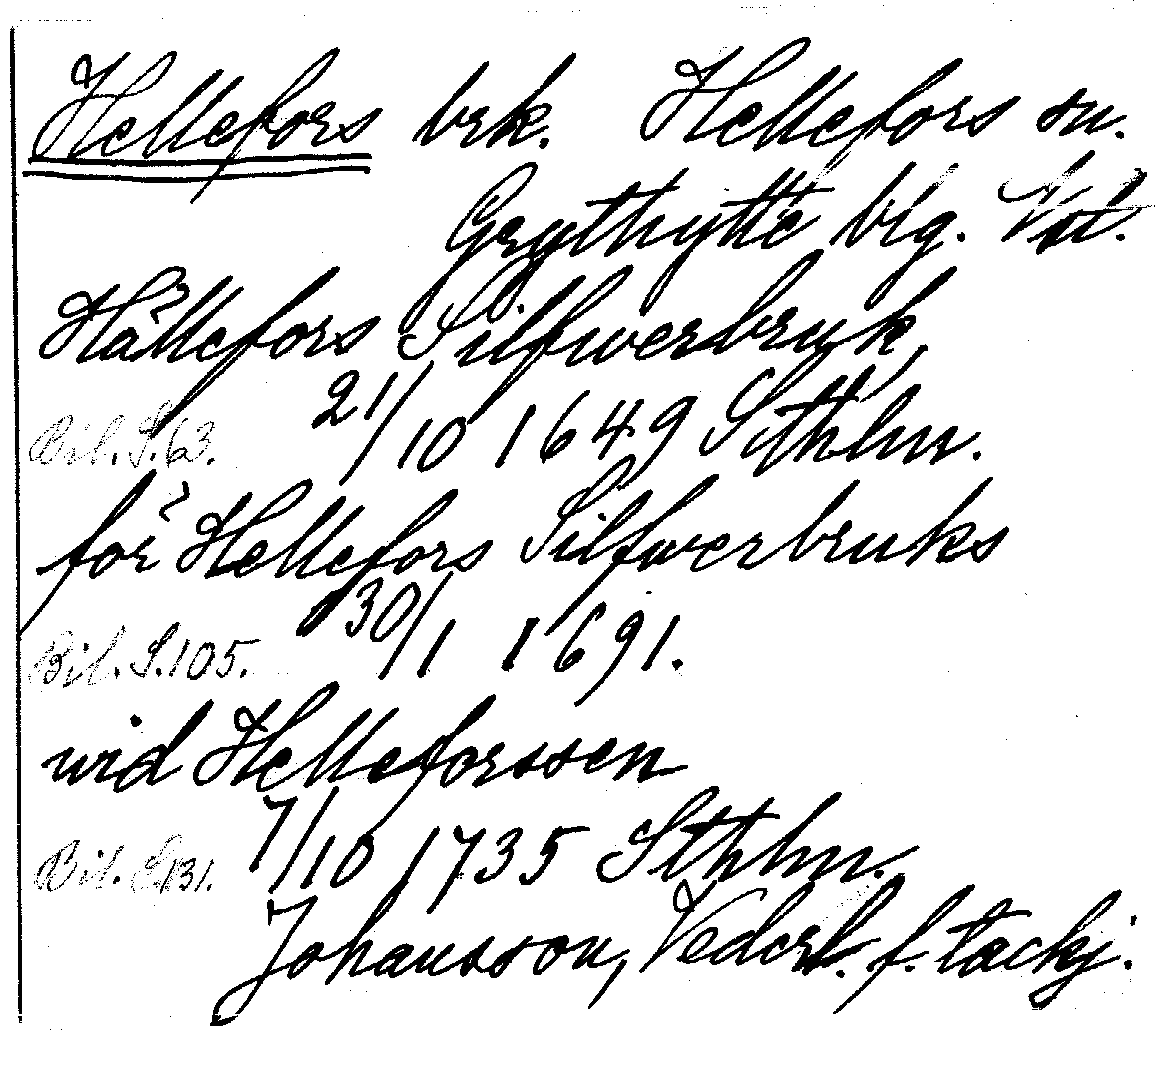 Hellefors brk. Hellefors sn.
Grythytte blg. Vstl.
Hällefors Silfwerbruk,
Bil. S.63. 21/10 1649 Sthlm.
för Hellefors Silfwerbruks
Bil. S.105. 30/1 1691.
wid Helleforssen
Bil. S.131. 7/10 1735 Sthlm.
Johansson, Vederl. f. tackj.